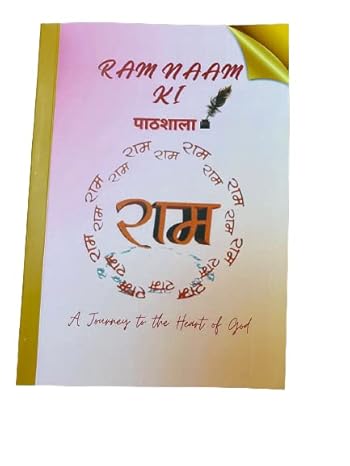 RAM NAAM
KI
पाठशाला
राम राम राम
राम राम
राम राम
राम राम
राम
राम राम
राम राम
राम राम
राम राम राम
A Journey to the Heart of God